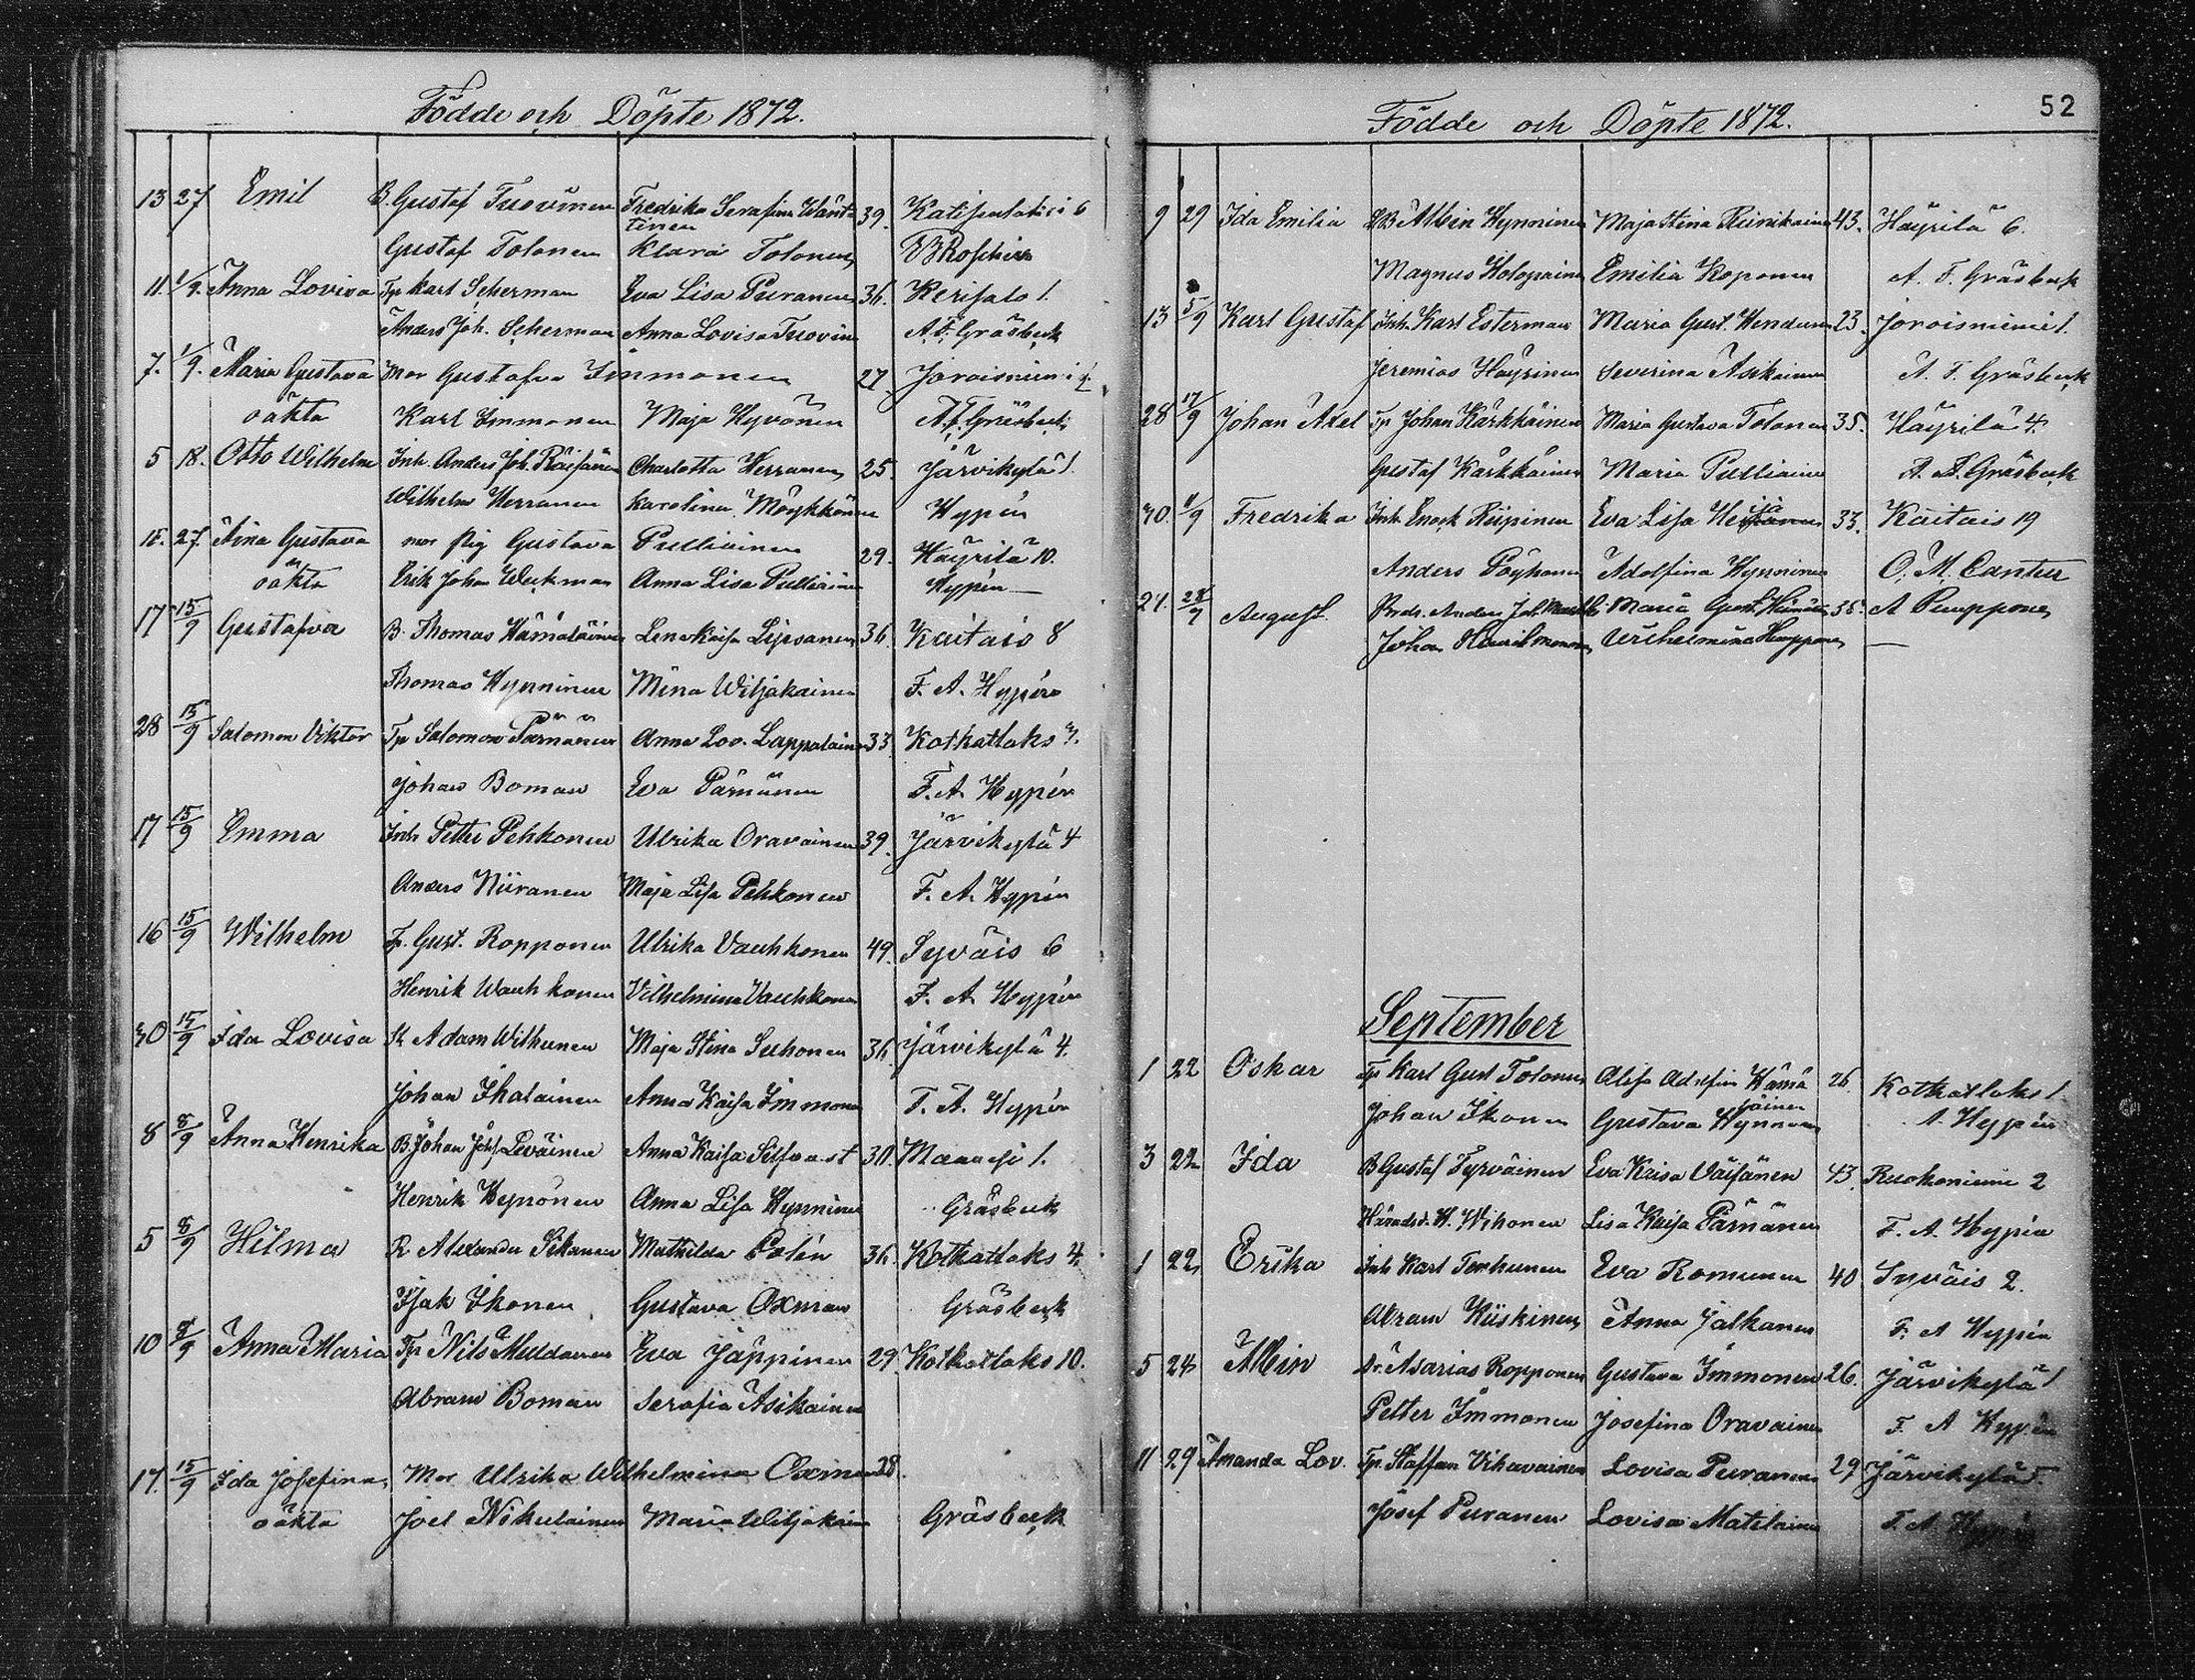 Födde och Döpte 1872.
13 27 Emil B. Gustaf Tuovinen Fredrika Serafina Wänt= 39. Katisenlaks 6
tinen
Gustaf Tolonen Klara Tolonen
11. 1/9. Anna Lovisa Tp Karl Scherman Eva Lisa Puranen 36. Kerisalo 1.
Anders Joh. Scherman Anna Lovisa Tuovin A. F. Gräsbeck
7. 1/9. Maria Gustava Mor Gustafva Immonen 27 Joroisniemi 1.
oäkta Karl Immonen Maja Hyvönen A. F. Gräsbeck
5 18. Otto Wilhelm Inh. Anders Joh. Räisänen Charlotta Herranen 25. Järvikylä 1.
Wilhelm Herranen Karolina Möykkönen Hypén
27. Aina Gustava mor pig Gustava Pulliainen 29. Häyrilä 10.
oäkta Erik Johan Weckman Anna Lisa Pulliainen Hypén
17 15/9 Gustafva B. Thomas Hämäläinen Lena Kaisa 36. Kaitais 8
Thomas Hynninen Mina Wiljakainen F. A. Hypén
28 15/9 Salomon Viktor Tp Salomon Pärnänen Anna Lov. Lappalainen 33. Kotkatlaks 7.
Johan Boman Eva Pärnänen F. A. Hypén
17 15/9 Emma Inh Petter Pehkonen Ulrika Oravainen 39. Järvikylä 4
Anders Niiranen Maja Lisa Pehkonen F. A. Hypén
16 15/9 Wilhelm Tp. Gust. Ropponen Ulrika Vauhkonen 49. Syväis 6
Henrik Wauhkonen Vilhelmina Vauhkonen F. A. Hypén
30 15/9 Ida Lovisa Adam Wilhunen Maja Stina Suhonen 36 Järvikylä 4.
Johan Ikalainen Anna Kaisa Immonen F. A. Hypén
8 8/9 Anna Henrika B. Johan Leväinen Anna Kaisa Silfvast 30. Maavesi 1.
Henrik Hynönen Anna Lisa Hynninen Gräsbeck
5 8/9 Hilma R Alexander Sikanen Mathilda Polén 36. Kotkatlaks 4.
Isak Ikonen Gustava Oxman Gräsbeck
10 8/9 Anna Maria Tp Nils Muldanen Eva Jäppinen 29. Kotkatlaks 10.
Abram Boman Serafia Asikainen
17. 15/9 Ida Josefina, Mor Ulrika Wilhelmina Oxman 28.
oäkta Joel Nikulainen Maria Wiljakain Gräsbeck
Födde och Döpte 1872.
52
9 29 Ida Emilia Albin Hynninen Maja Stina Riinikainen 43. Häyrilä 6.
Magnus Holopainen Emilia Koponen A. F. Gräsbeck
13 5/9 Karl Gustaf Inh. Karl Esterman Maria Gust. Hendunen 23. Joroisniemi 1.
Jeremias Häyrinen Severina Asikainen A. F. Gräsbeck
28 17/9 Johan Axel Tp Johan Kärkkäinen Maria Gustava Tolonen 35. Häyrilä 4.
Gustaf Kärkkäinen Maria Pulliainen A. F. Gräsbeck
30. Fredrika Inh Enok Riipinen Eva Lisa 33. Kaitais 19
Anders Pöyhönen Adolfina Hynninen O. M. Canter
August. Anders Joh. Maria Gust. 35. A Pumppone
Johan Wilhelmina Humppone —
September
1 22 Oskar Tp Karl Gust Tolonen Alisa Adolfina Hämä 26 Kotkatlaks 1.
läinen
Johan Ikonen Gustava Hynninen A. Hypén
3 22 Ida B Gustaf Tyrväinen Eva Kaisa Väisänen 43. Ruokoniemi 2
Häradsd. H. Wihonen Lisa Kaisa Pärnänen F. A. Hypén
1 22, Erika Inh Karl Terhunen Eva Romunen 40 Syväis 2.
Abram Kiiskinen Anna Jalkanen F. A Hypén
5 24 Albin Dr. Asarias Ropponen Gustava Immonen 26. Järvikylä 1
Petter Immonen Josefina Oravainen F. A Hypén
11 29 Amanda Lov. Tp. Staffan Vihavainen Lovisa Puranen 29 Järvikylä
Josef Puranen Lovisa Matilainen F. A. Hypén